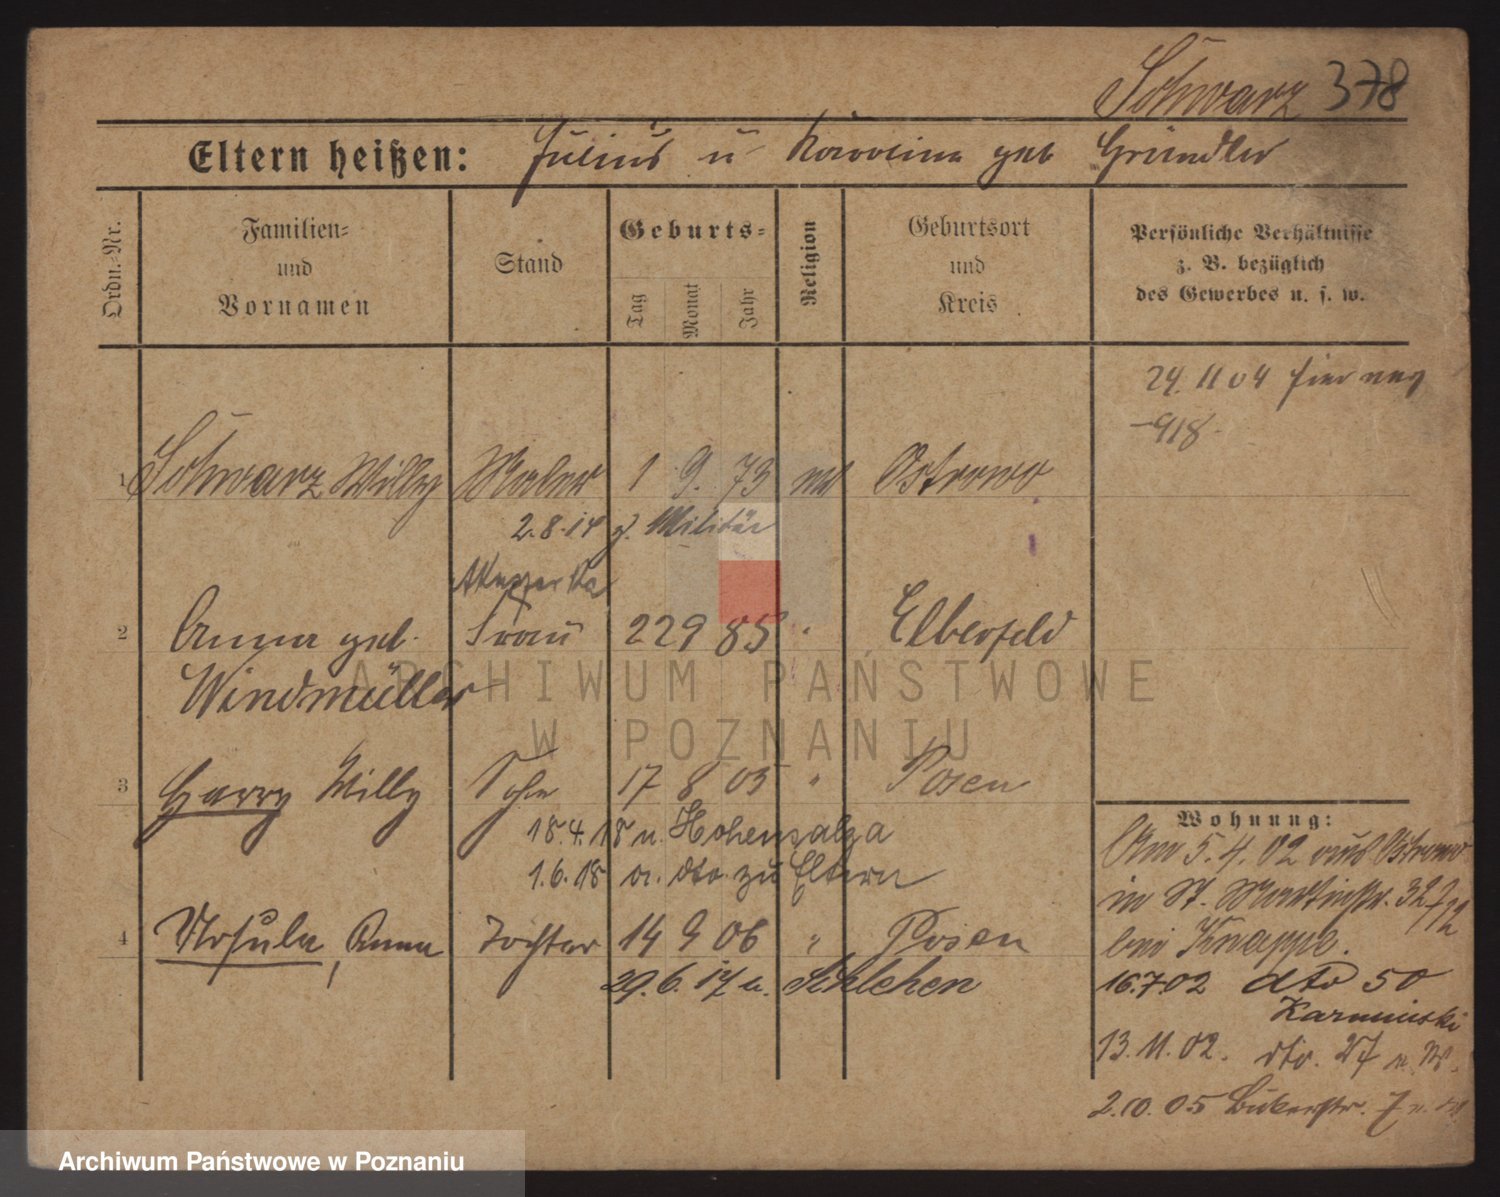 Schwarz 378
Eltern heißen: Julius u Karoline geb Gründler
Ordn.-Nr.
Familien-
und
Vornamen
Stand
Geburts-
Tag
Monat
Jahr
Religion
Geburtsort
und
Kreis
Persönliche Verhältnisse
z. B. bezüglich
des Gewerbes u. s. w.
24. 11 04
918
1 Schwarz Willy Maler 1 9. 73 Ostrowo
2.8.14 z. Militär
2 Anna geb. Frau 22 9 85 " Elberfeld
Windmüller
3 Harry Willy Sohn 17 8 03 " Posen
18.4.18 n. Hohensalza
1.6.18 a. dto. zu Eltern
4 Ursula, Anna Tochter 14 9 06 " Posen
29.6.17 n.
Wohnung:
Am 5.4.02 aus Ostrowo
in St. Martinstr. 32
bei Knappe.
16.7.02 dto 50
Karminski
13.11.02. dto. 27
2.10.05 Bukerstr. 7
ARCHIWUM PAŃSTWOWE
W POZNANIU
Archiwum Państwowe w Poznaniu